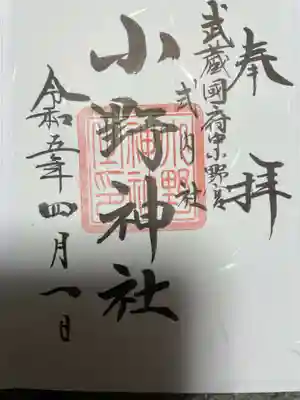 奉拝
武蔵國府中小野宮
式内社
小野神社
令和五年四月一日